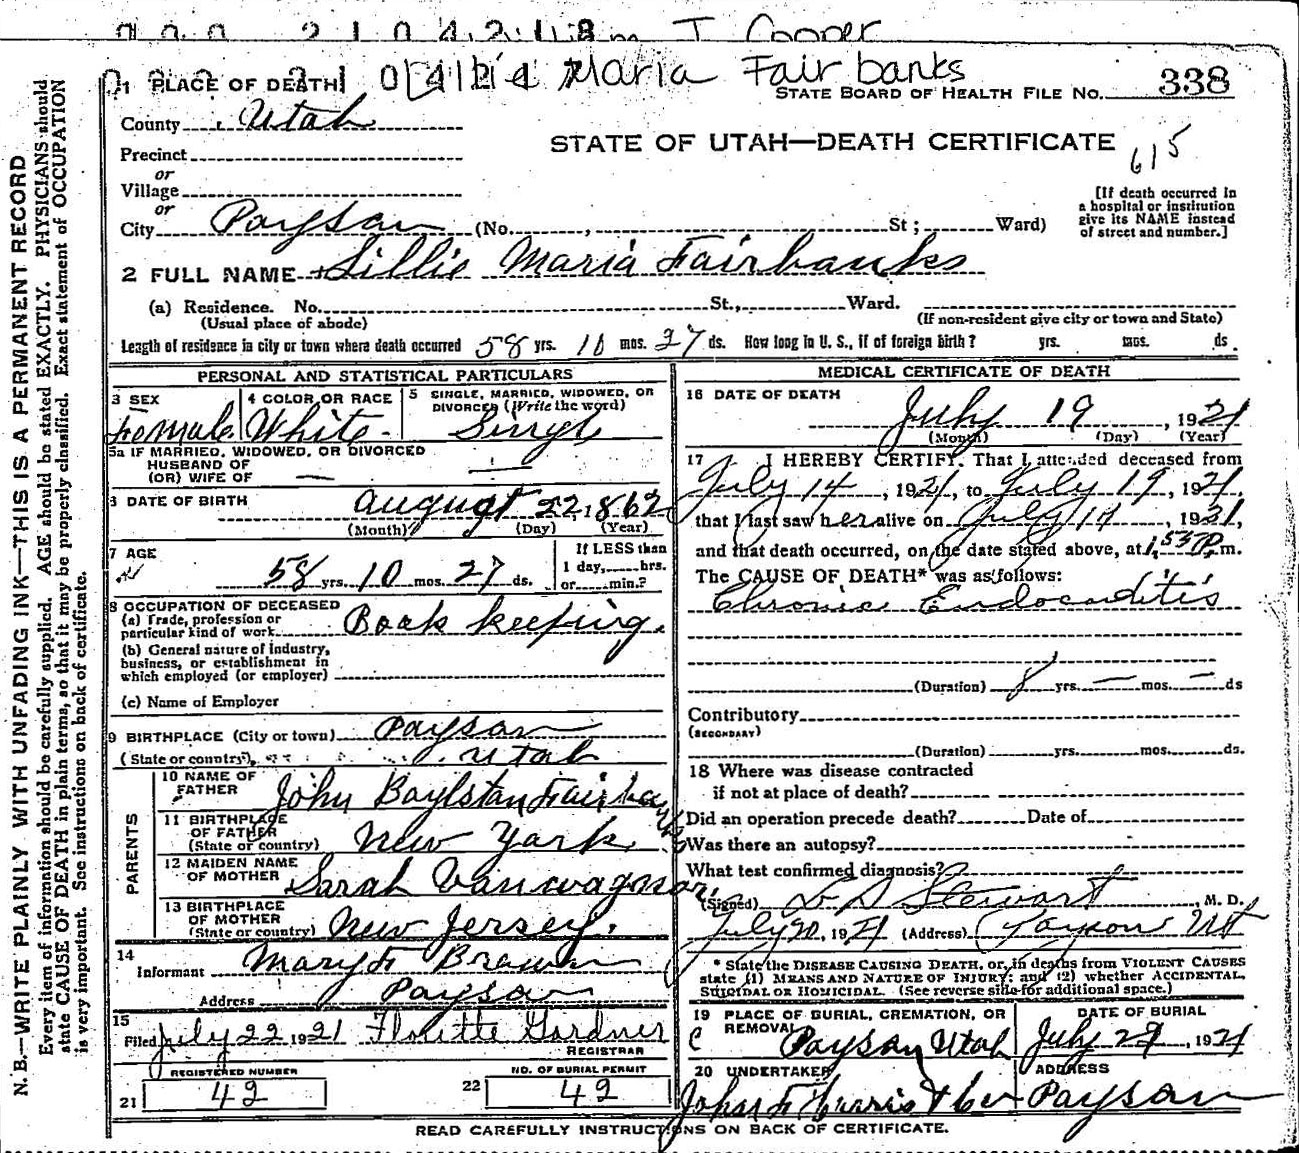 Maria Fairbanks
1 PLACE OF DEATH
STATE BOARD OF HEALTH FILE NO. 338
County Utah
STATE OF UTAH—DEATH CERTIFICATE
615
Precinct
or
Village
or
City Payson (No. , St; Ward)
[If death occurred in
a hospital or institution
give its NAME instead
of street and number.]
2 FULL NAME Lillie Maria Fairbanks
(a) Residence. No. St., Ward.
(Usual place of abode) (If non-resident give city or town and State)
Length of residence in city or town where death occurred 58 yrs. 10 mos. 27 ds. How long in U. S., if of foreign birth? yrs. mos. ds.
PERSONAL AND STATISTICAL PARTICULARS
3 SEX
Female
4 COLOR OR RACE
White
5 SINGLE, MARRIED, WIDOWED, OR
DIVORCED (Write the word)
Single
5a IF MARRIED, WIDOWED, OR DIVORCED
HUSBAND OF
(OR) WIFE OF —
DATE OF BIRTH August 22, 1862
(Month) (Day) (Year)
7 AGE
58 yrs. 10 mos. 27 ds.
If LESS than
1 day, hrs.
or min.?
8 OCCUPATION OF DECEASED
(a) Trade, profession or
particular kind of work Book keeping.
(b) General nature of industry,
business, or establishment in
which employed (or employer)
(c) Name of Employer
9 BIRTHPLACE (City or town) Payson
(State or country) Utah
PARENTS
10 NAME OF
FATHER John Boylstan Fairbanks
11 BIRTHPLACE
OF FATHER
(State or country) New York
12 MAIDEN NAME
OF MOTHER Sarah Vanwagnor,
13 BIRTHPLACE
OF MOTHER
(State or country) New Jersey.
14
Informant Mary F Brown
Address Payson
15
Filed July 22 1921 Florette Gardner
REGISTRAR
REGISTERED NUMBER
21 42
NO. OF BURIAL PERMIT
22 42
MEDICAL CERTIFICATE OF DEATH
16 DATE OF DEATH
July 19, 1921
(Month) (Day) (Year)
17 I HEREBY CERTIFY, That I attended deceased from
July 14, 1921, to July 19, 1921,
that I last saw her alive on July
and that death occurred, on the date stated above, at m.
The CAUSE OF DEATH* was as follows:
Chronic Endocarditis
(Duration) 8 yrs. — mos. — ds
Contributory
(SECONDARY)
(Duration) yrs. mos. ds.
18 Where was disease contracted
if not at place of death?
Did an operation precede death? Date of
Was there an autopsy?
What test confirmed diagnosis?
(Signed) L D Stewart, M. D.
July 20, 1921 (Address) Payson Ut
* State the DISEASE CAUSING DEATH, or, in deaths from VIOLENT CAUSES
state (1) MEANS AND NATURE OF INJURY; and (2) whether ACCIDENTAL,
SUICIDAL OR HOMICIDAL. (See reverse side for additional space.)
19 PLACE OF BURIAL, CREMATION, OR
REMOVAL
Payson Utah
DATE OF BURIAL
July 1921
20 UNDERTAKER
ADDRESS
Payson
READ CAREFULLY INSTRUCTIONS ON BACK OF CERTIFICATE.
N. B.—WRITE PLAINLY WITH UNFADING INK—THIS IS A PERMANENT RECORD
Every item of information should be carefully supplied. AGE should be stated EXACTLY. PHYSICIANS should
state CAUSE OF DEATH in plain terms, so that it may be properly classified. Exact statement of OCCUPATION
is very important. See instructions on back of certificate.